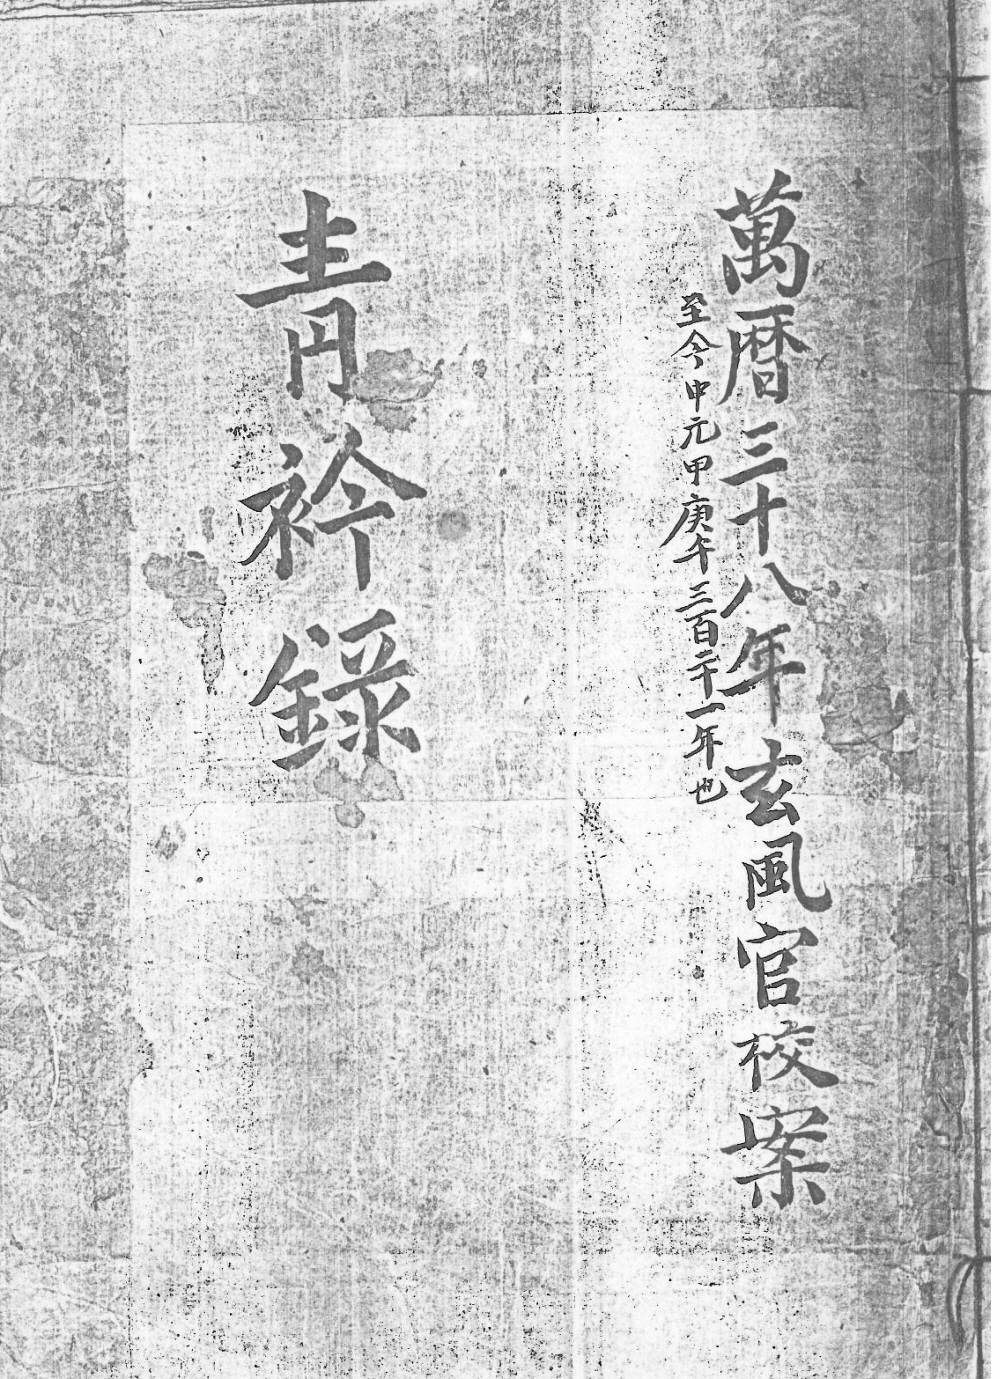 萬暦三十八年玄風官校案
至今中元甲庚午三百二十一年也
靑衿錄